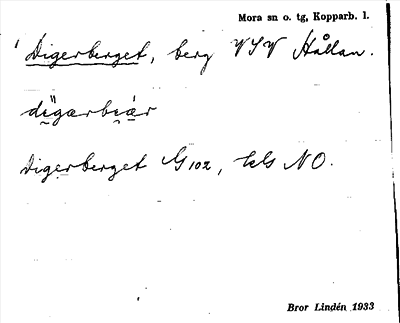 Mora sn o. tg, Kopparb. l.
Digerberget, berg VSV Hållan.
Digerberget G102, NO.
Bror Lindén 1933